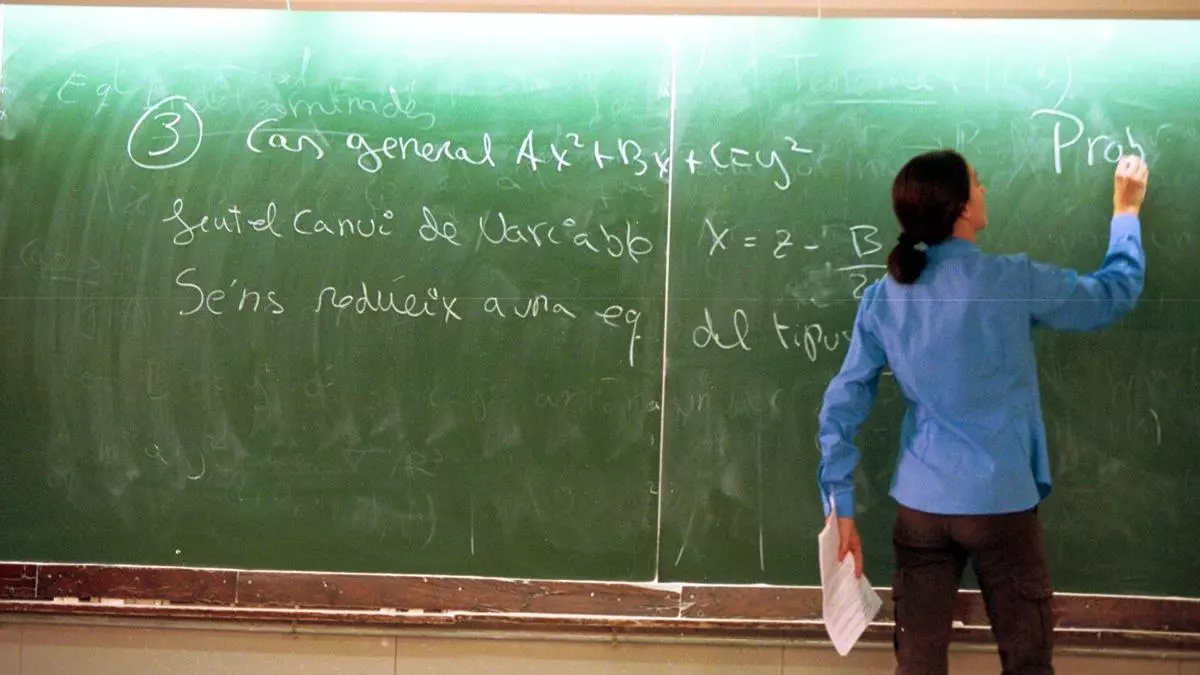 ③ Cas general Ax²+Bx+C=y² Prob
fent el canvi de variable X = z - B/2
Se'ns redueix a una eq del tipus